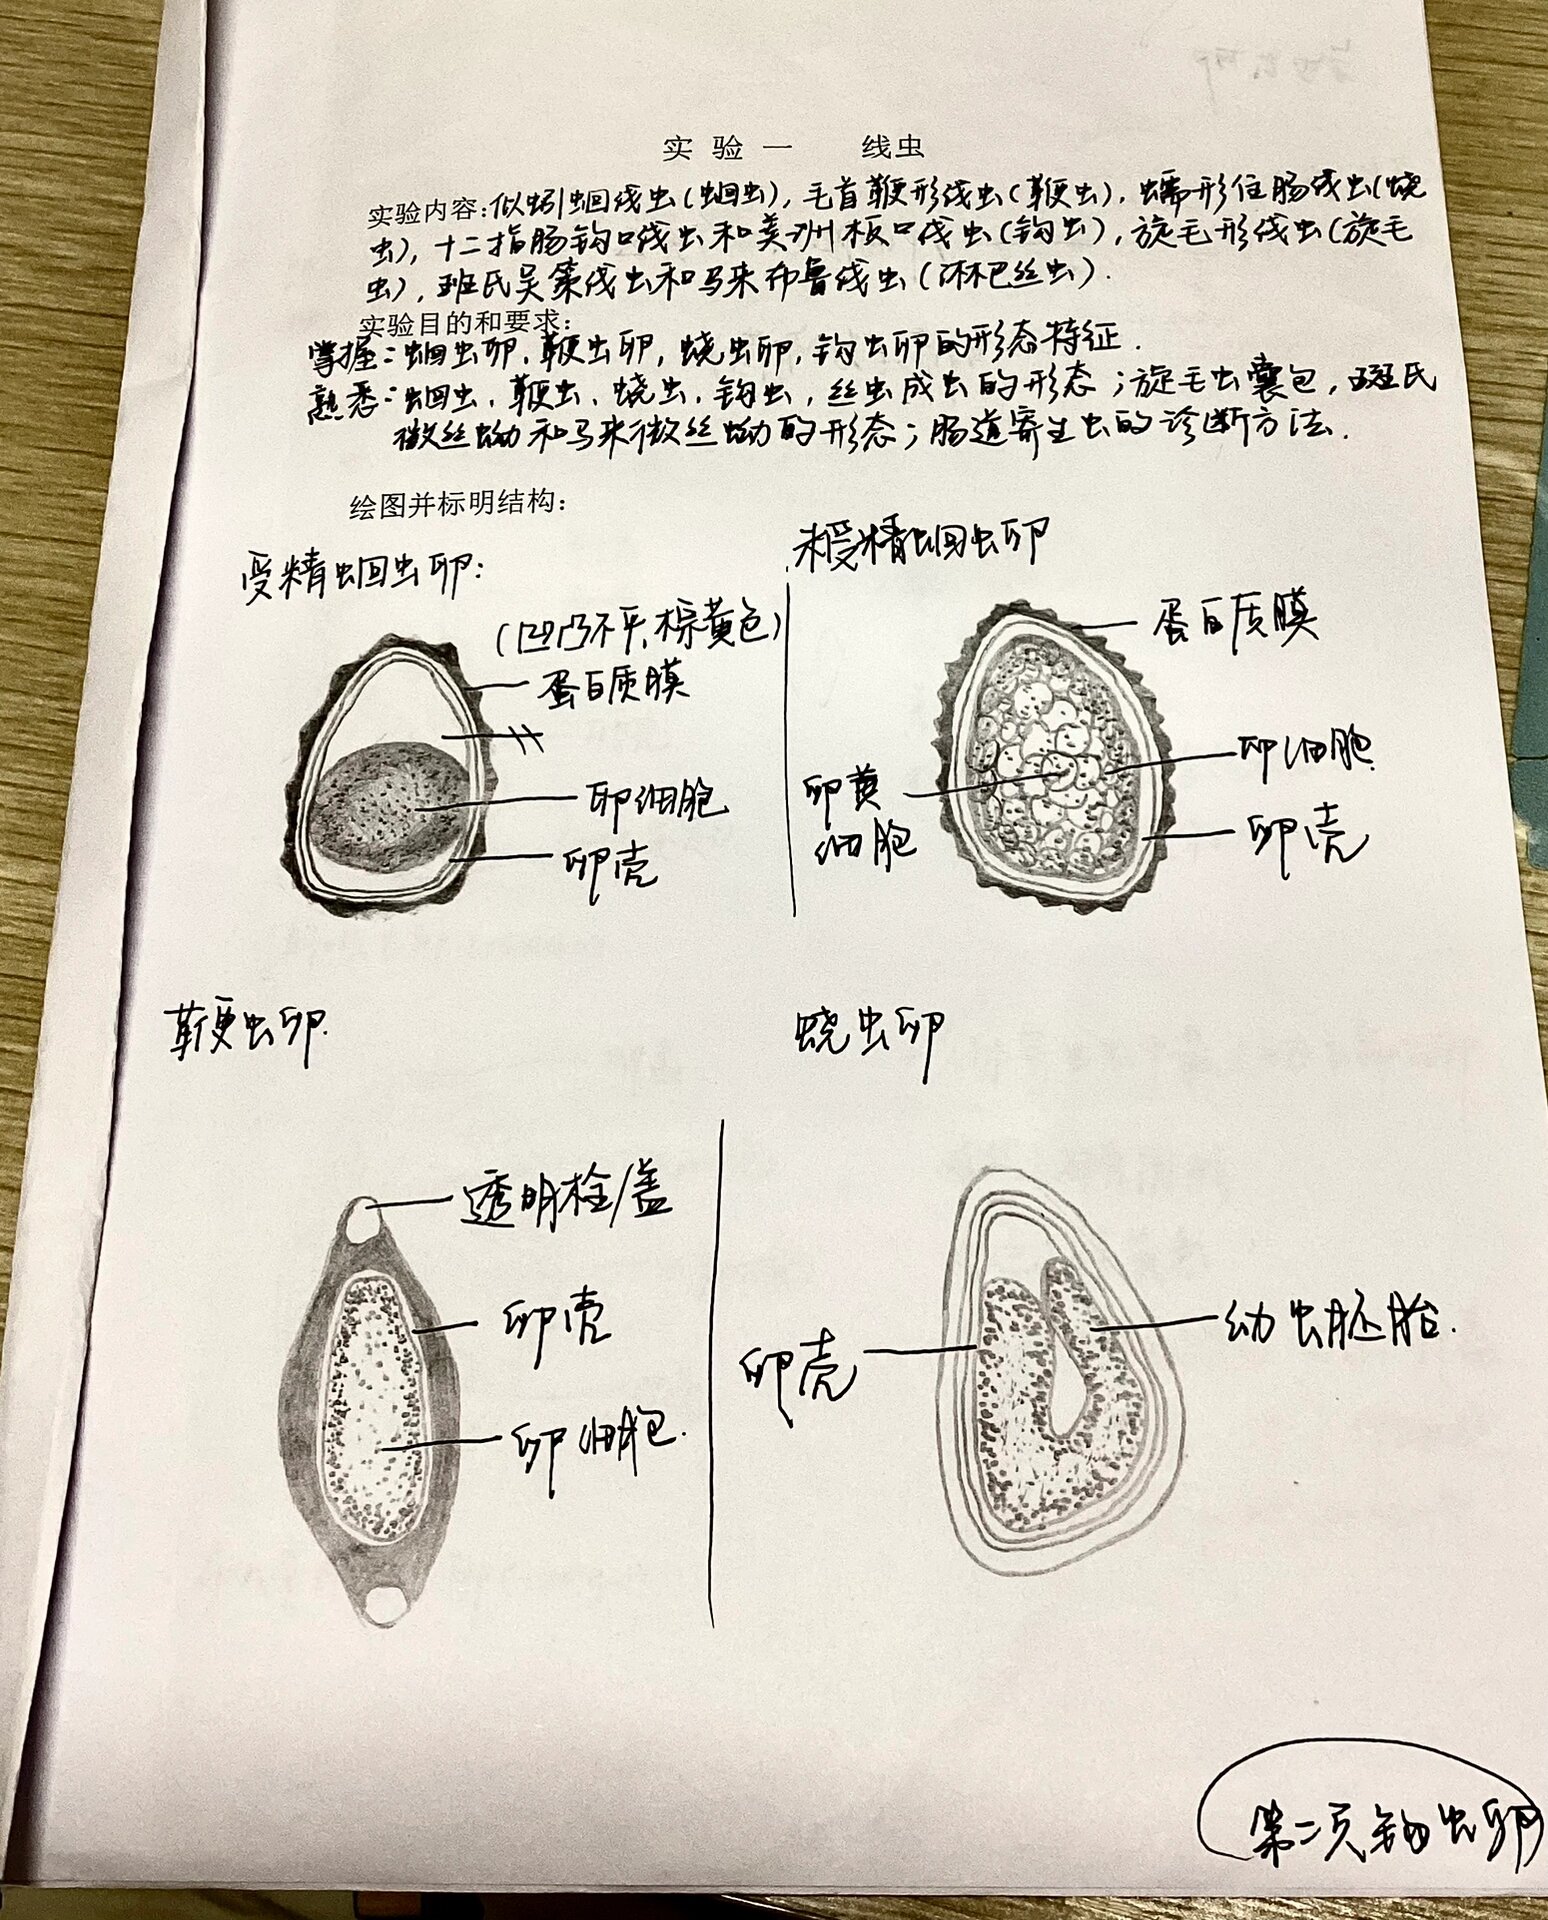 实验一 线虫
实验内容:似蚓蛔线虫(蛔虫),毛首鞭形线虫(鞭虫),蠕形住肠线虫(蛲
虫),十二指肠钩口线虫和美洲板口线虫(钩虫),旋毛形线虫(旋毛
虫),班氏吴策线虫和马来布鲁线虫(淋巴丝虫).
实验目的和要求:
掌握:蛔虫卵,鞭虫卵,蛲虫卵,钩虫卵的形态特征.
熟悉:蛔虫、鞭虫、蛲虫、钩虫,丝虫成虫的形态;旋毛虫囊包,班氏
微丝蚴和马来微丝蚴的形态;肠道寄生虫的诊断方法.
绘图并标明结构:
受精蛔虫卵:
(凹凸不平,棕黄色)
蛋白质膜
卵细胞
卵壳
未受精蛔虫卵
蛋白质膜
卵细胞
卵黄
细胞
卵壳
鞭虫卵.
透明栓/盖
卵壳
卵细胞.
蛲虫卵
卵壳
幼虫胚胎.
第二页钩虫卵